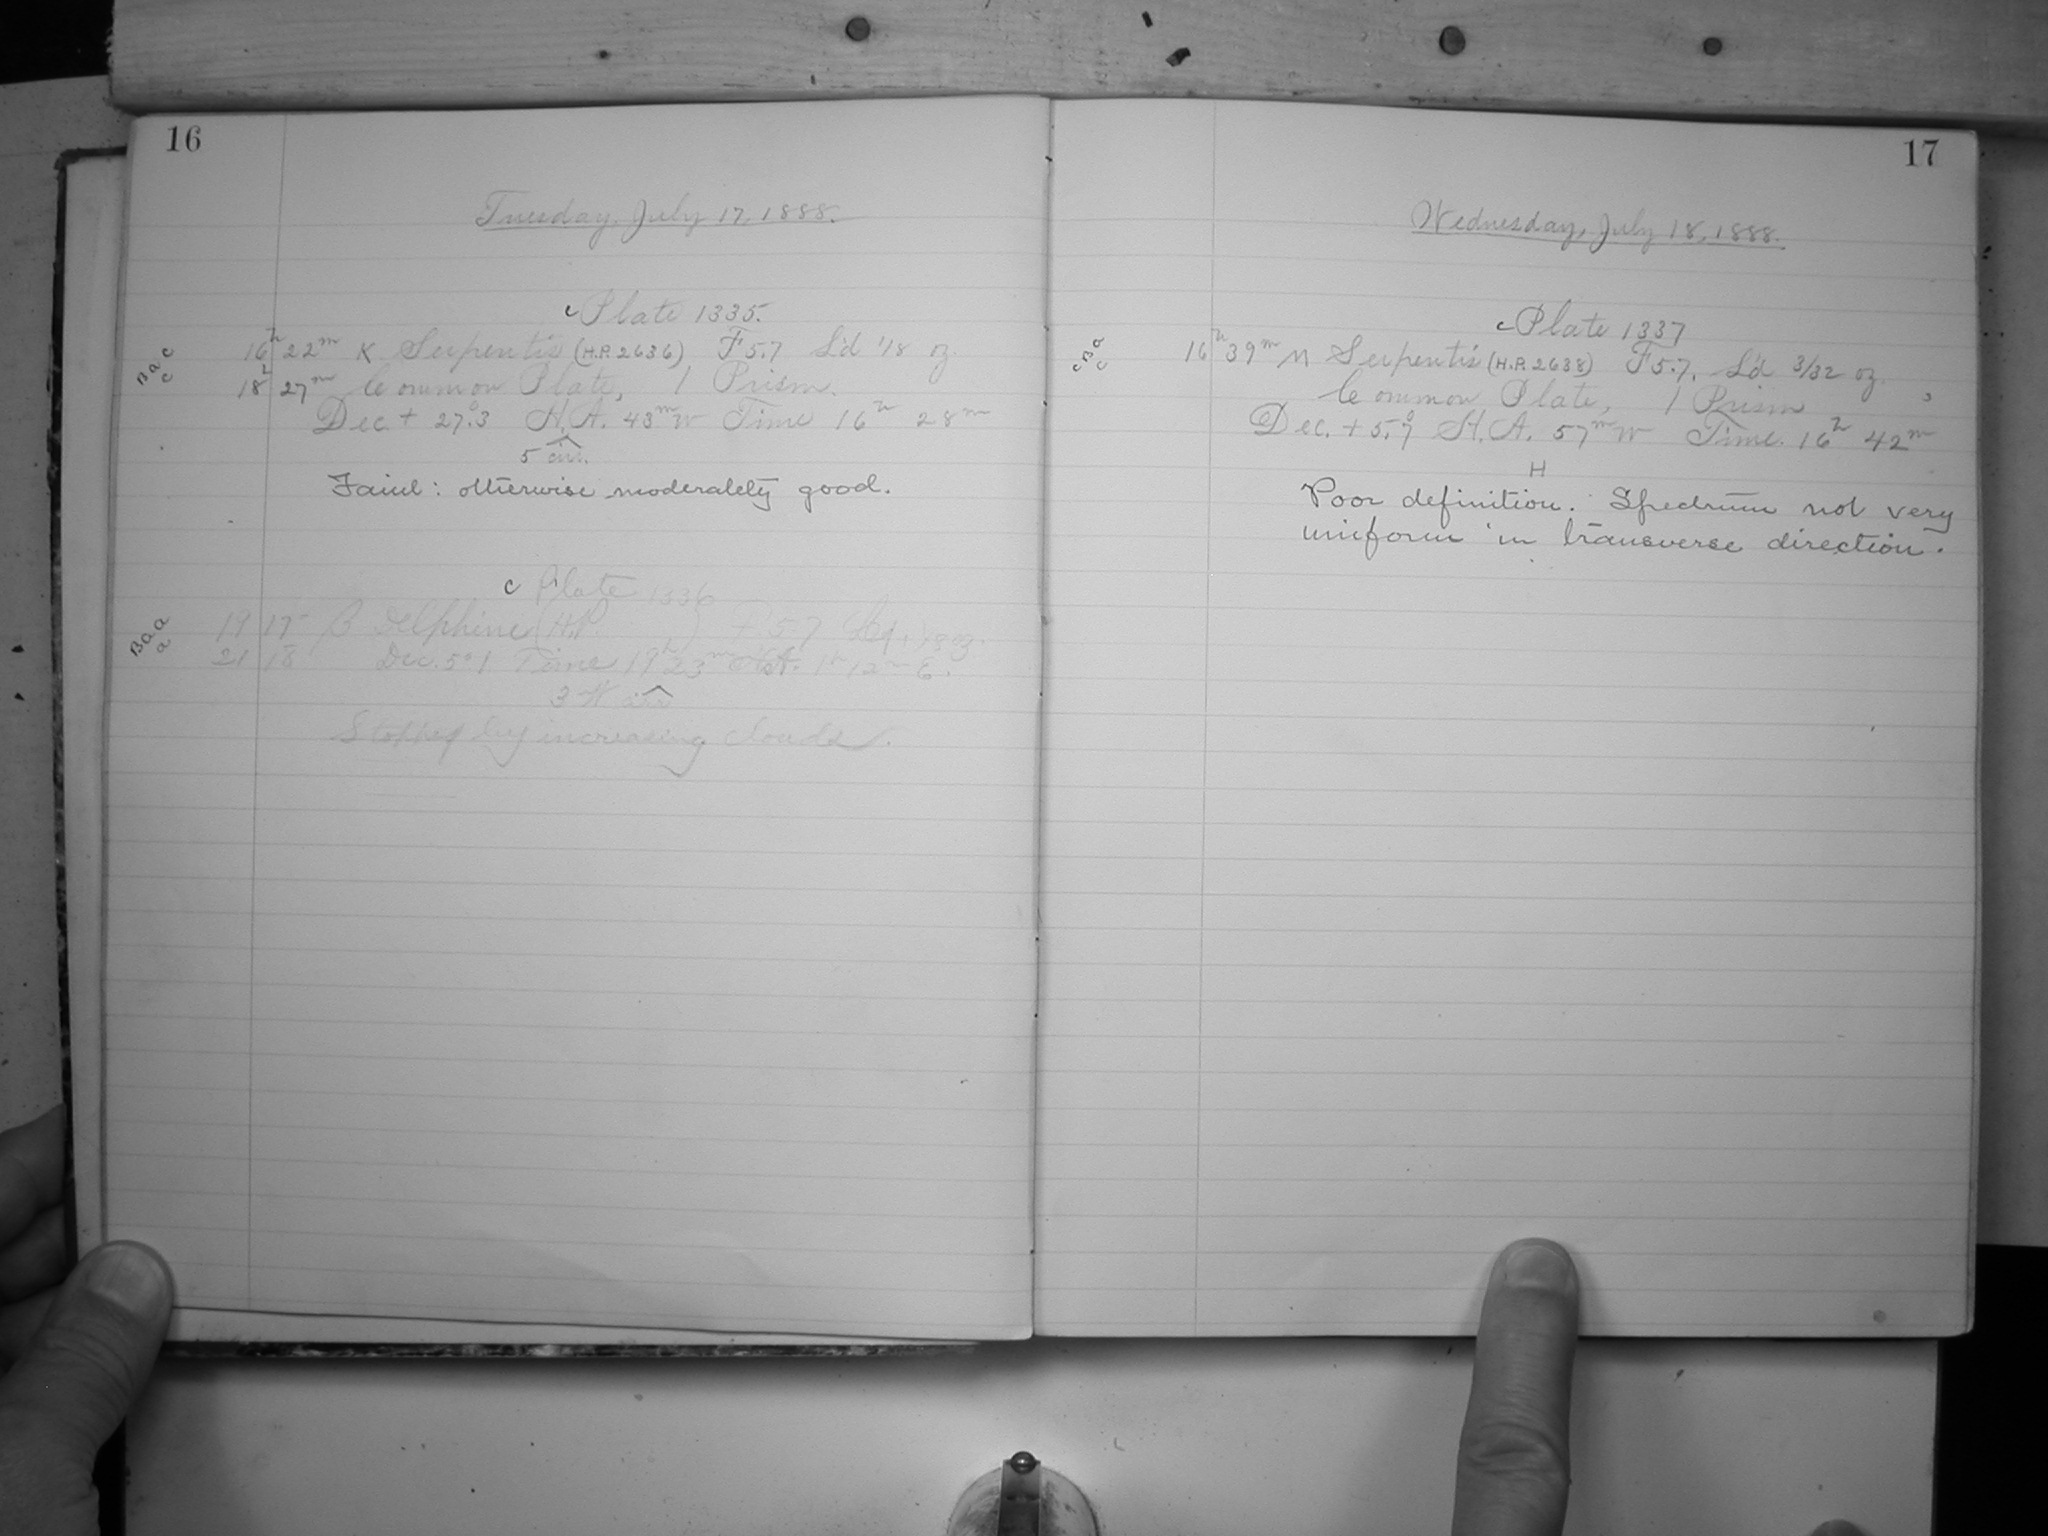 16
Tuesday, July 17, 1888.
c Plate 1335.
16h 22m K Serpentis (H.P. 2636) F 5.7 L'd 1/8 oz
18h 27m Common Plate, 1 Prism.
Dec. + 27°.3 H.A. 43m W Time 16h 28m
5
Faint: otherwise moderately good.
c Plate 1336
19 17 β Delphini (H.P. ) F 5.7
21 18 Dec. 5°.1 Time 19h 23m H.A. 1h 12m E.
3
Stopped by increasing clouds.
17
Wednesday, July 18, 1888.
c Plate 1337
16h 39m Serpentis (H.P. 2638) F 5.7. L'd 3/32 oz.
Common Plate, 1 Prism
Dec. + 5.°7 H.A. 57m W Time 16h 42m
H
Poor definition. Spectrum not very
uniform in transverse direction.